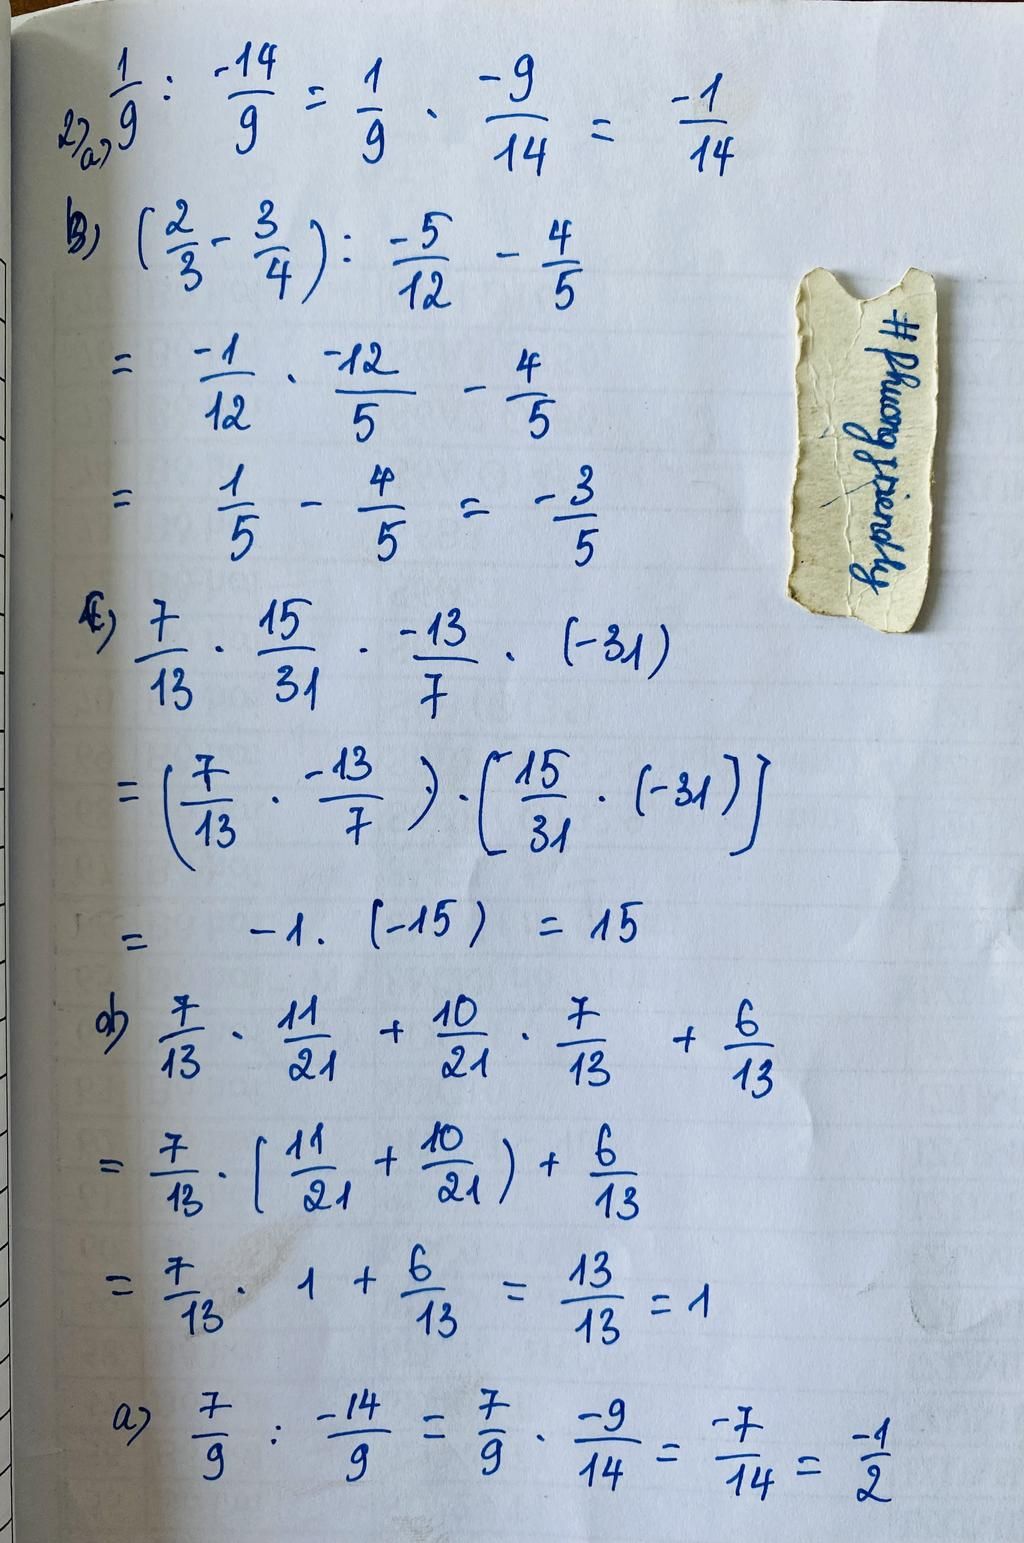 2) a) 1/9 : -14/9 = 1/9 . -9/14 = -1/14
b) (2/3 - 3/4) : -5/12 - 4/5
= -1/12 . -12/5 - 4/5
= 1/5 - 4/5 = -3/5
c) 7/13 . 15/31 . -13/7 . (-31)
= (7/13 . -13/7) . [15/31 . (-31)]
= -1 . (-15) = 15
d) 7/13 . 11/21 + 10/21 . 7/13 + 6/13
= 7/13 . (11/21 + 10/21) + 6/13
= 7/13 . 1 + 6/13 = 13/13 = 1
a) 7/9 : -14/9 = 7/9 . -9/14 = -7/14 = -1/2
#phuongfriendly